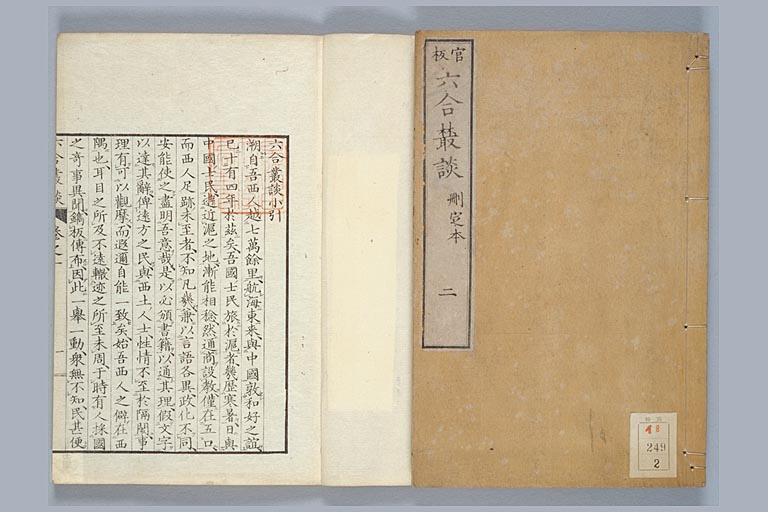 官板
六合叢談
刪定本
二
特別
48
249
2
六合叢談小引
溯自吾西人越七萬餘里航海東來與中國敦和好之誼
已十有四年於茲矣吾國士民旅於滬者幾歷寒暑日與
中國士民遊近滬之地漸能相稔然通商設教僅在五口
而西人足跡未至者不知凡幾兼以言語各異政化不同
安能使之盡明吾意哉是以必頒書籍以通其理假文字
以達其辭俾遠方之民與西土人士性情不至於隔閡事
理有可以觀摩而遐邇自能一致矣始吾西人之僻在西
隅也耳目之所及不遠轍迹之所至未周于時有人採國
之奇事異聞鐫板傳布因此一舉一動衆無不知民甚便
六合叢談 卷之一 一